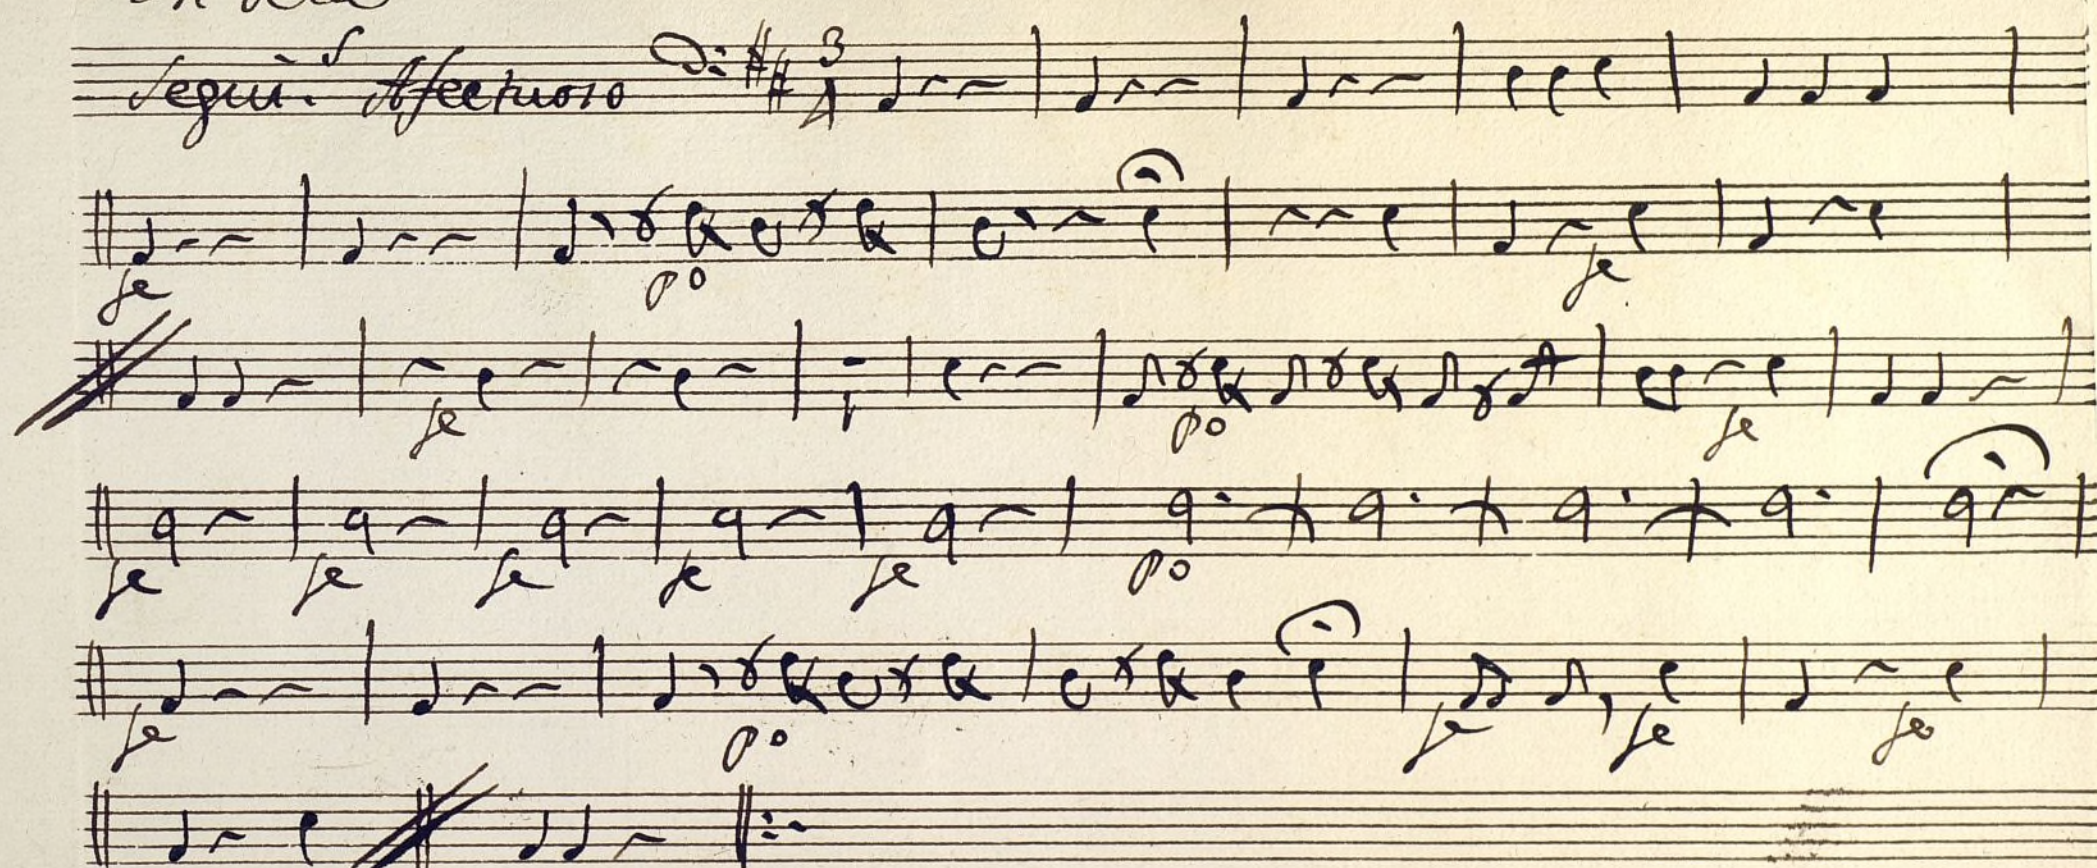 Segui.s Afectuoso 3 4
fe po fe
fe po fe
fe fe fe fe fe po
fe po fe fe fe